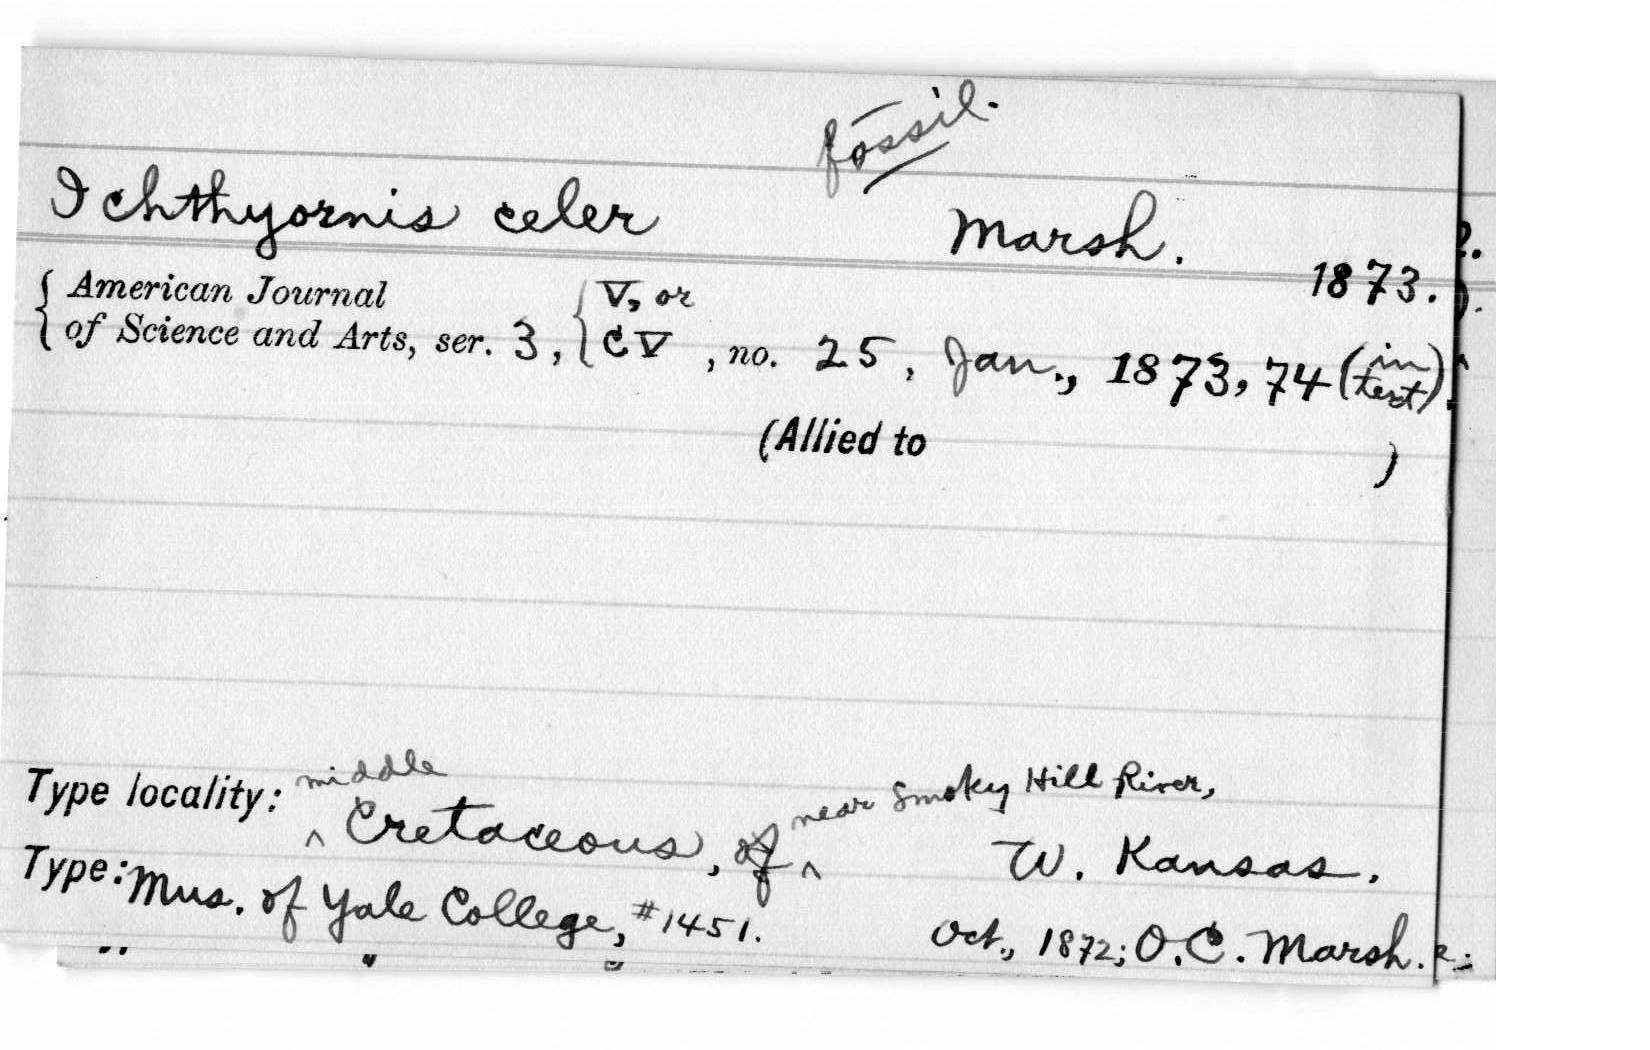 fossil.
Ichthyornis celer Marsh.
1873.
American Journal V, or
of Science and Arts, ser. 3, CV, no. 25, Jan., 1873, 74 (in text).
(Allied to )
middle near Smoky Hill River,
Type locality: ^ Cretaceous, of ^ W. Kansas.
Type: Mus. of Yale College, #1451. Oct., 1872; O.C. Marsh.